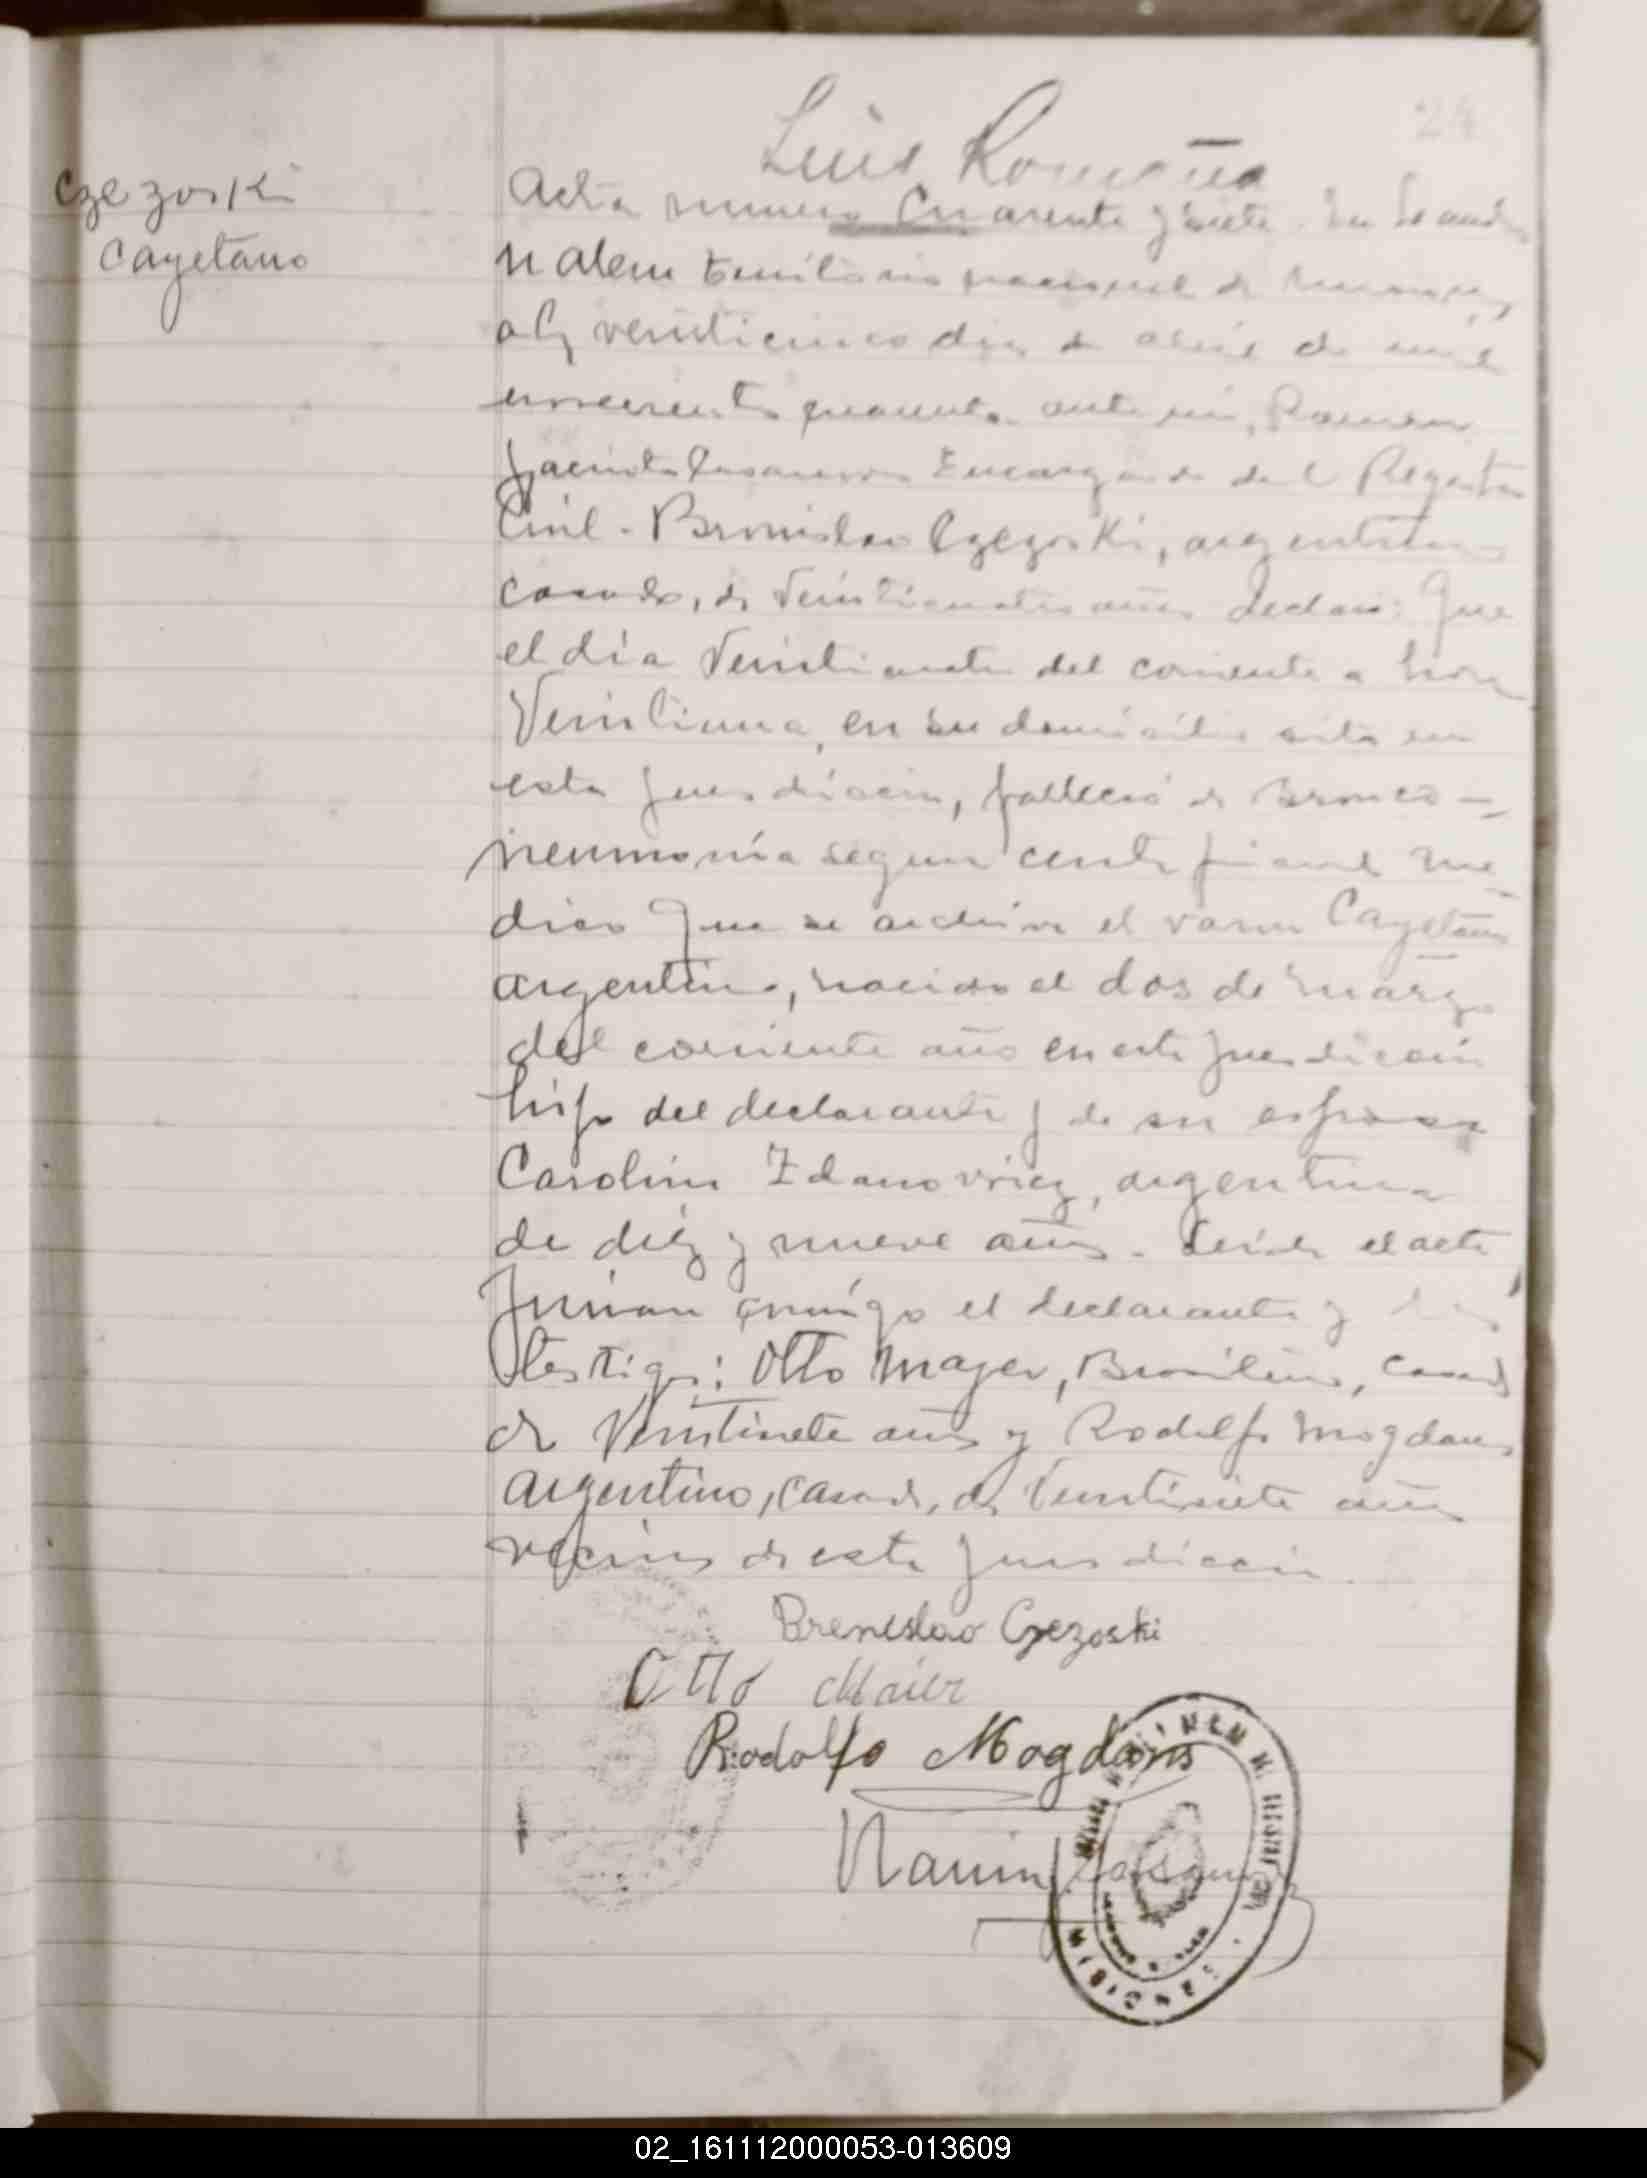 Luis Romaña
24
Czezoski
Cayetano
Acta numero Cuarenta y siete. En Leandro
N alem territorio nacional de Misiones,
a los veinticinco dias de abril de mil
novecientos cuarenta ante mi, Ramon
Jacinto Encargado del Registro
Civil. Bronislao Czezoski, argentino
casado, de veinticuatro años declaró: Que
el dia veinticuatro del corriente a hora
Veintiuna, en su domicilio sito en
esta jurisdicción, falleció de Bronco-
neumonía segun certificado me-
dico que se archiva el varon Cayetano
argentino, nacido el dos de marzo
del corriente año en esta jurisdicción
hijo del declarante y de su esposa
Carolina Zdanovicz, argentina
de diez y nueve años. Leida el acta
firman conmigo el declarante y los
testigos: Otto Mayer, Brasileño, casado
de Veintisiete años y Rodolfo Mogdans
argentino, casado, de Veintisiete años
vecinos de esta jurisdicción.
Breneslao Czezoski
Otto Maier
Rodolfo Mogdans
02_161112000053-013609